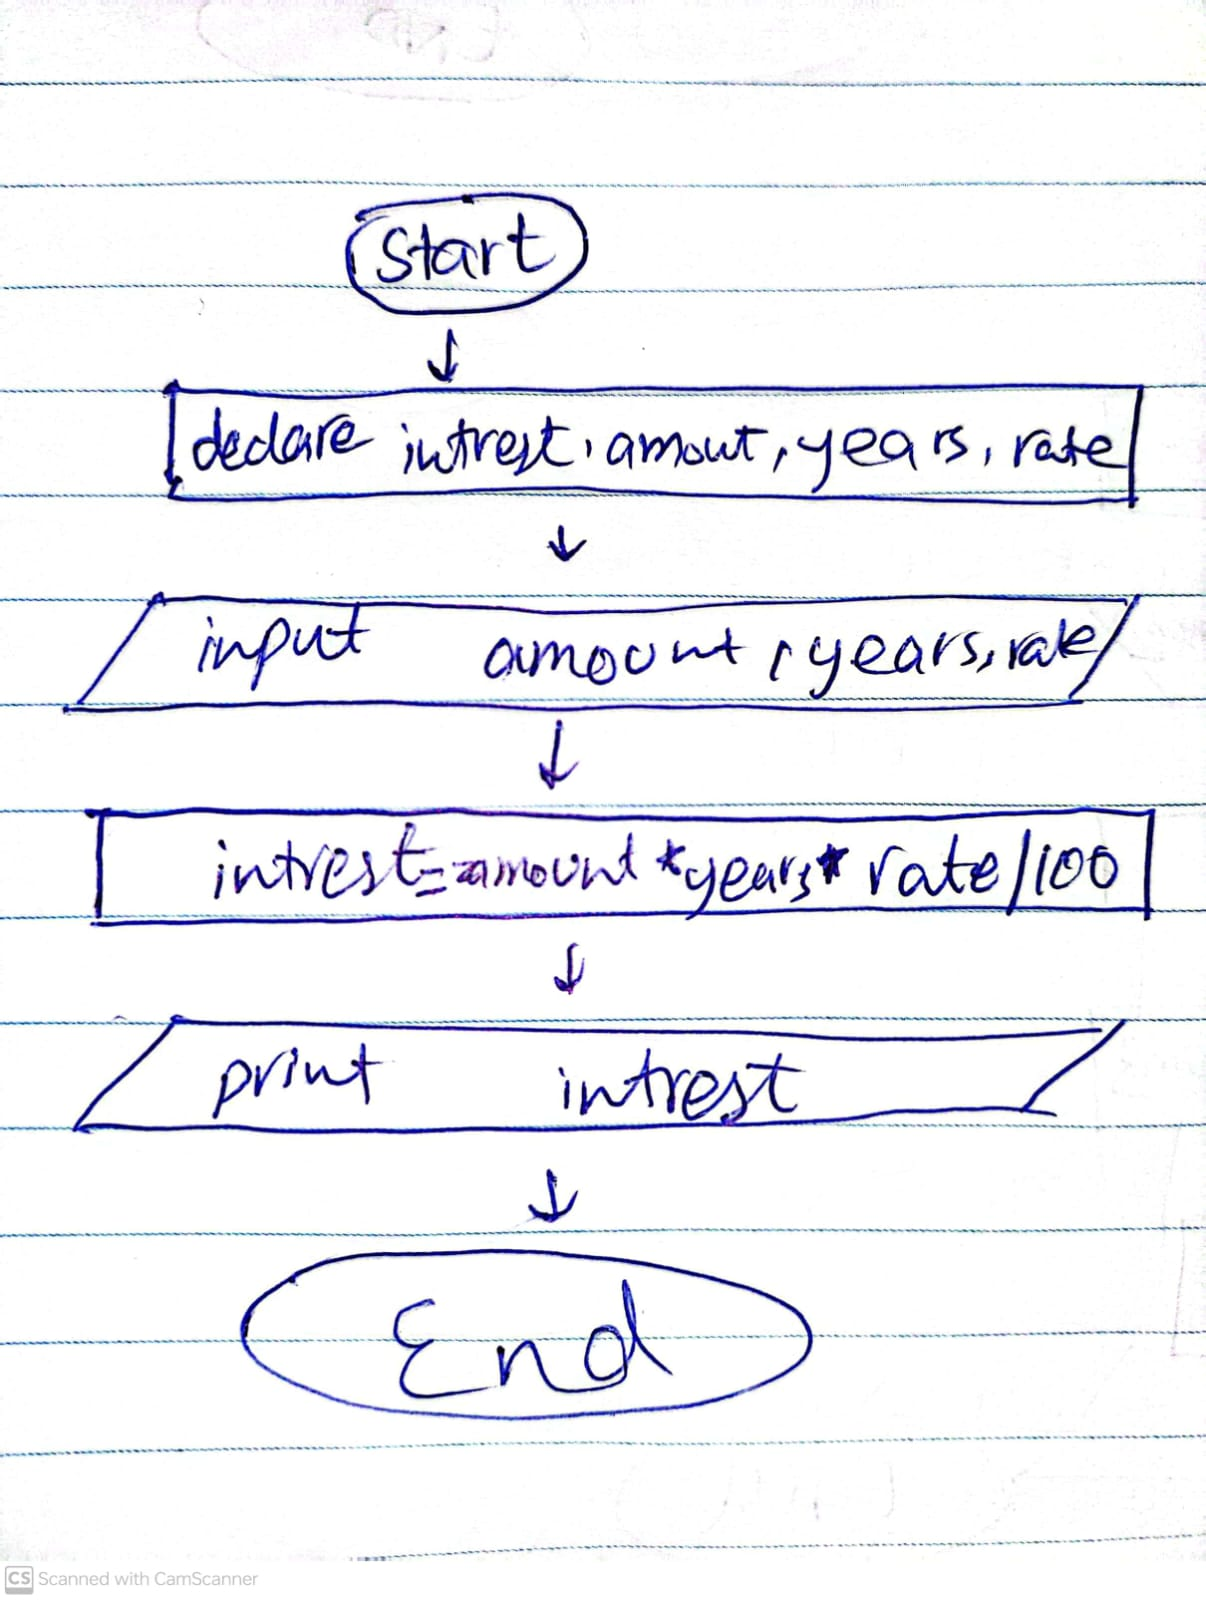 Start
declare intrest, amout, years, rate
input amount, years, rate
intrest=amount *years* rate/100
print intrest
End
CS Scanned with CamScanner